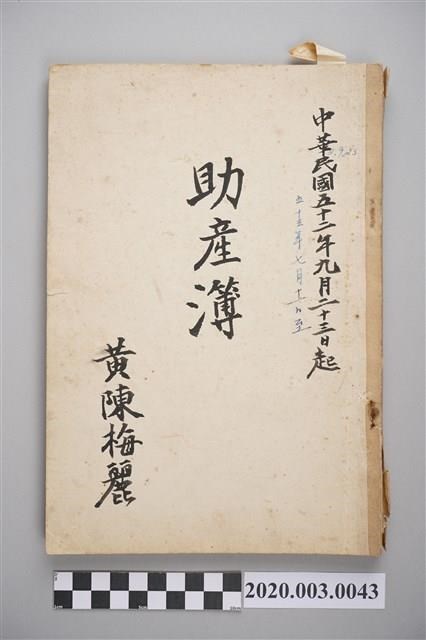 中華民國五十二年九月二十三日起
五十五年七月十一日至
助產簿
黃陳梅麗
2020.003.0043